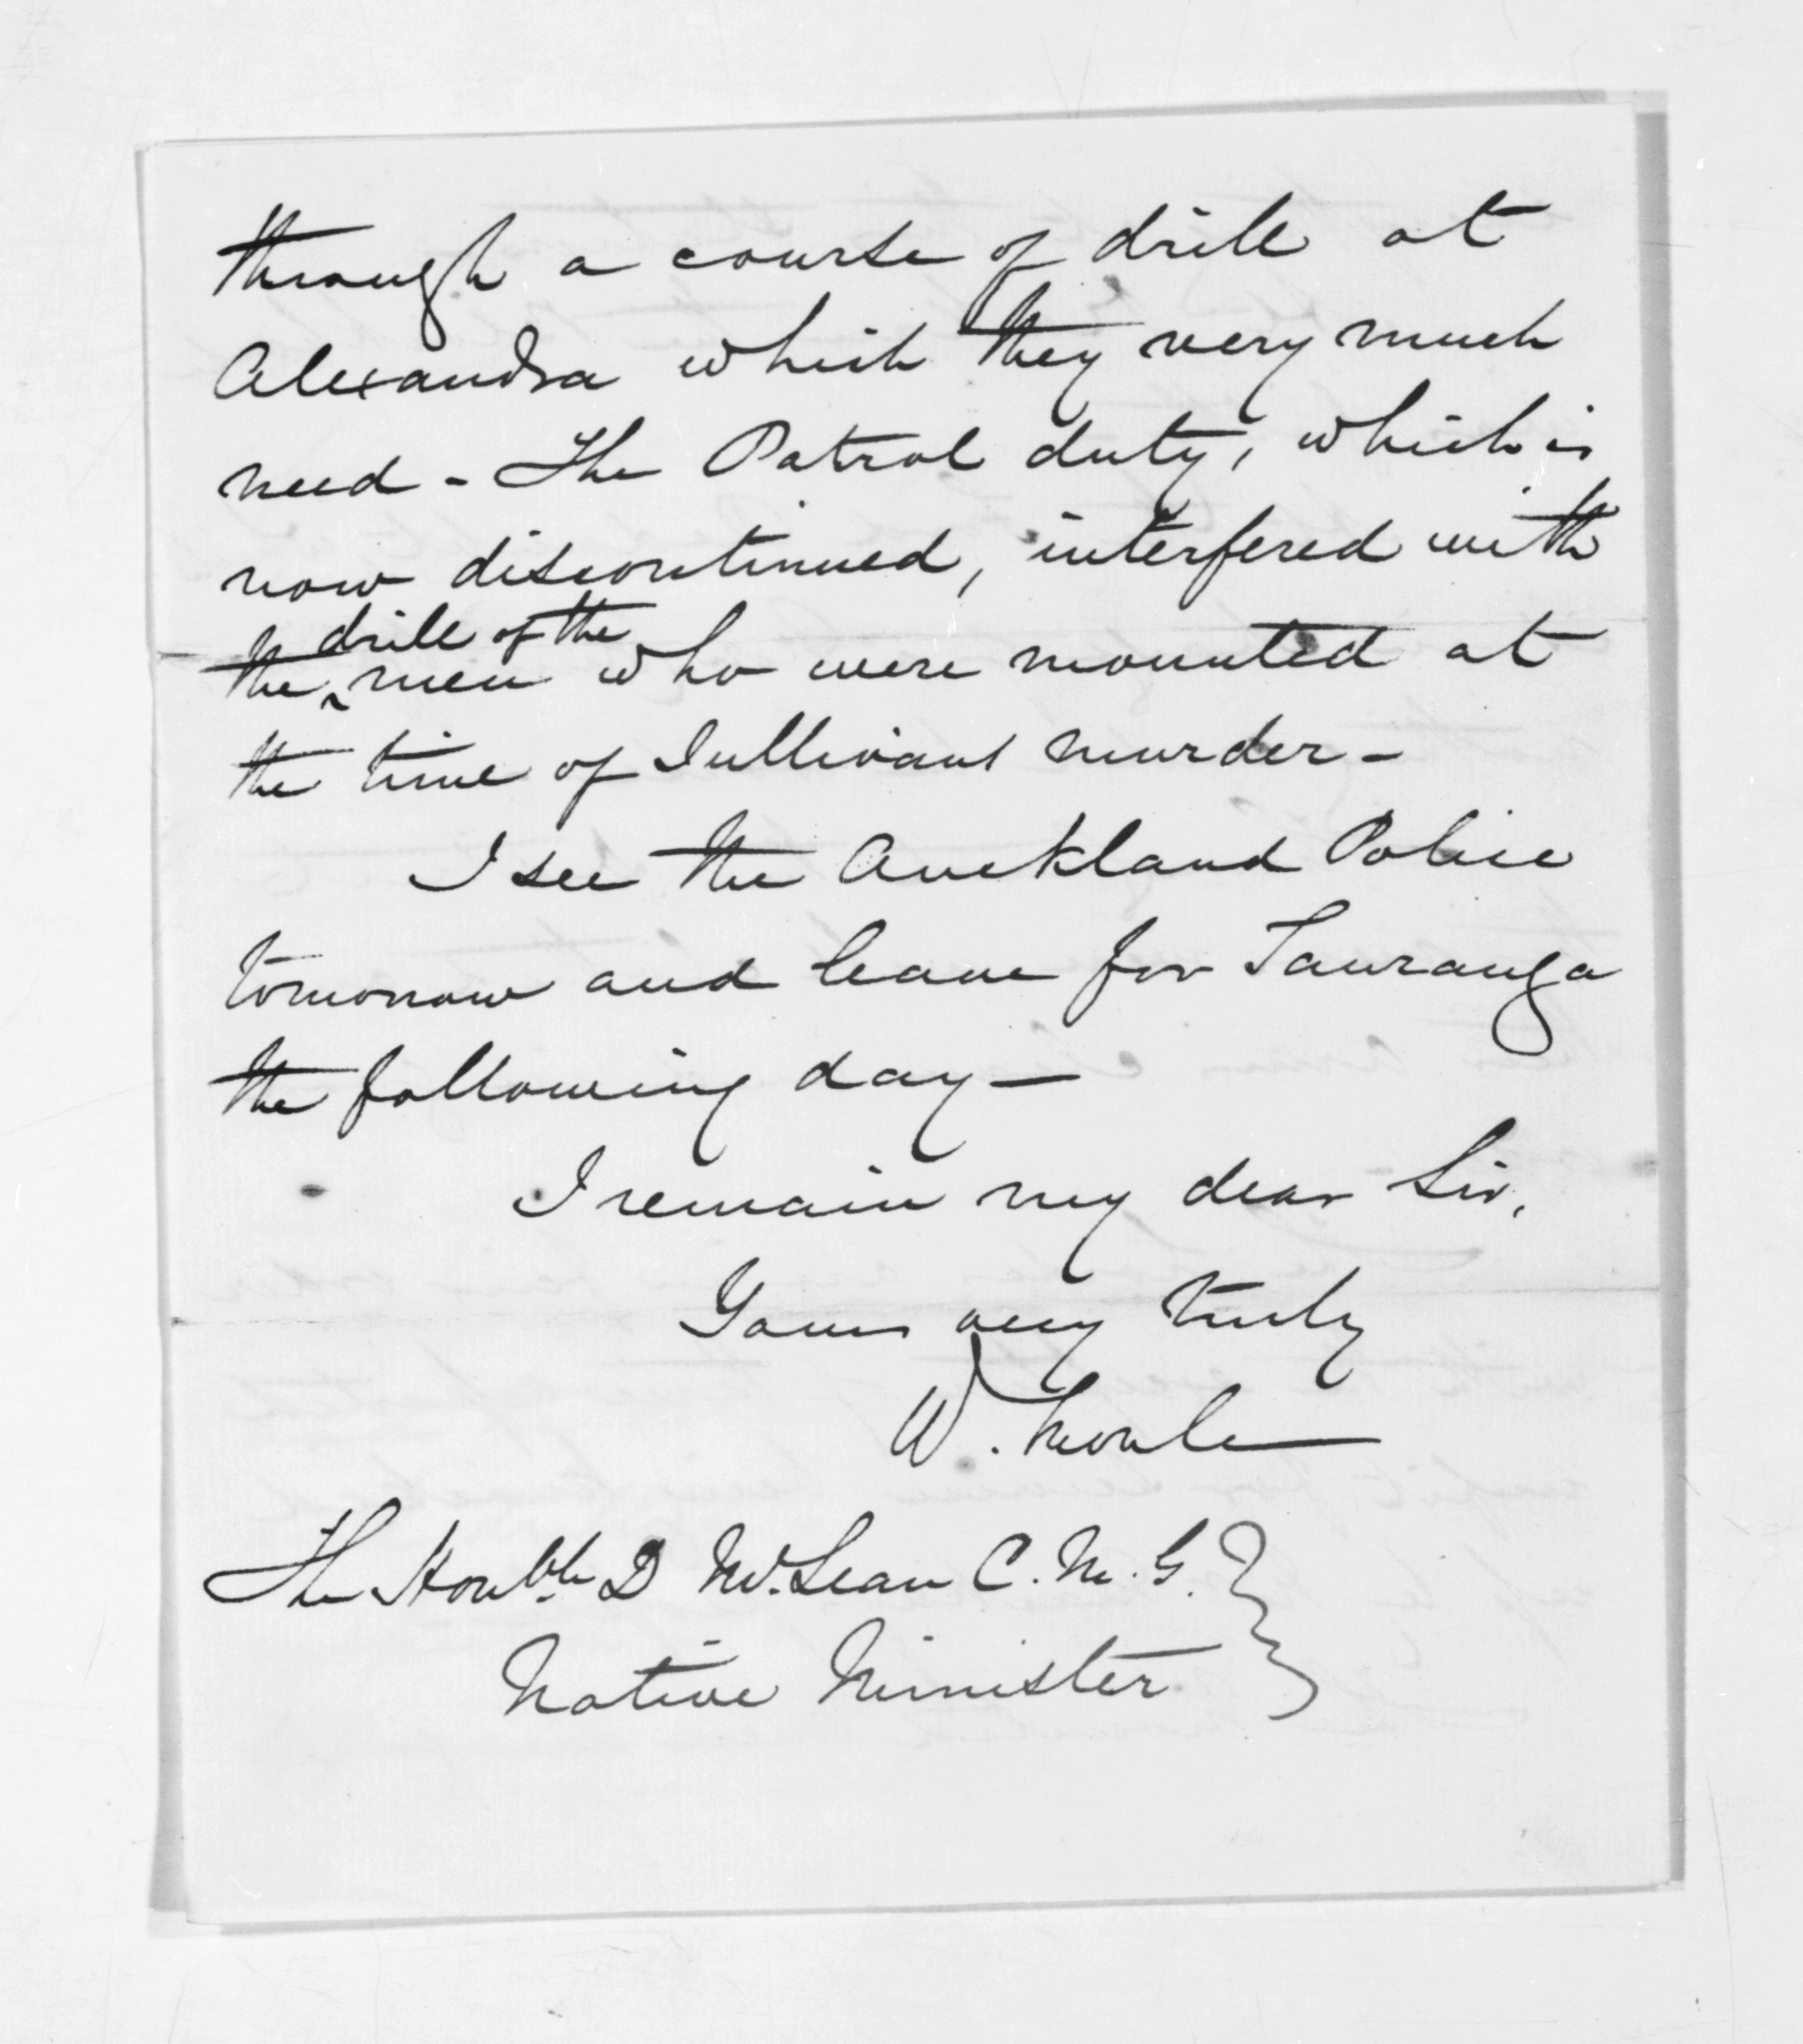 through a course of drill at
Alexandra which they very much
need - The Patrol duty, which is
now discontinued, interfered with
drill of the
the ^ men who were mounted at
the time of Sullivans murder -
I see the Auckland Police
tomorrow and leave for Tauranga
the following day —
I remain my dear Sir,
Yours very truly
W. Moule
The Honble. D McLean C.M.G.
Native Minister